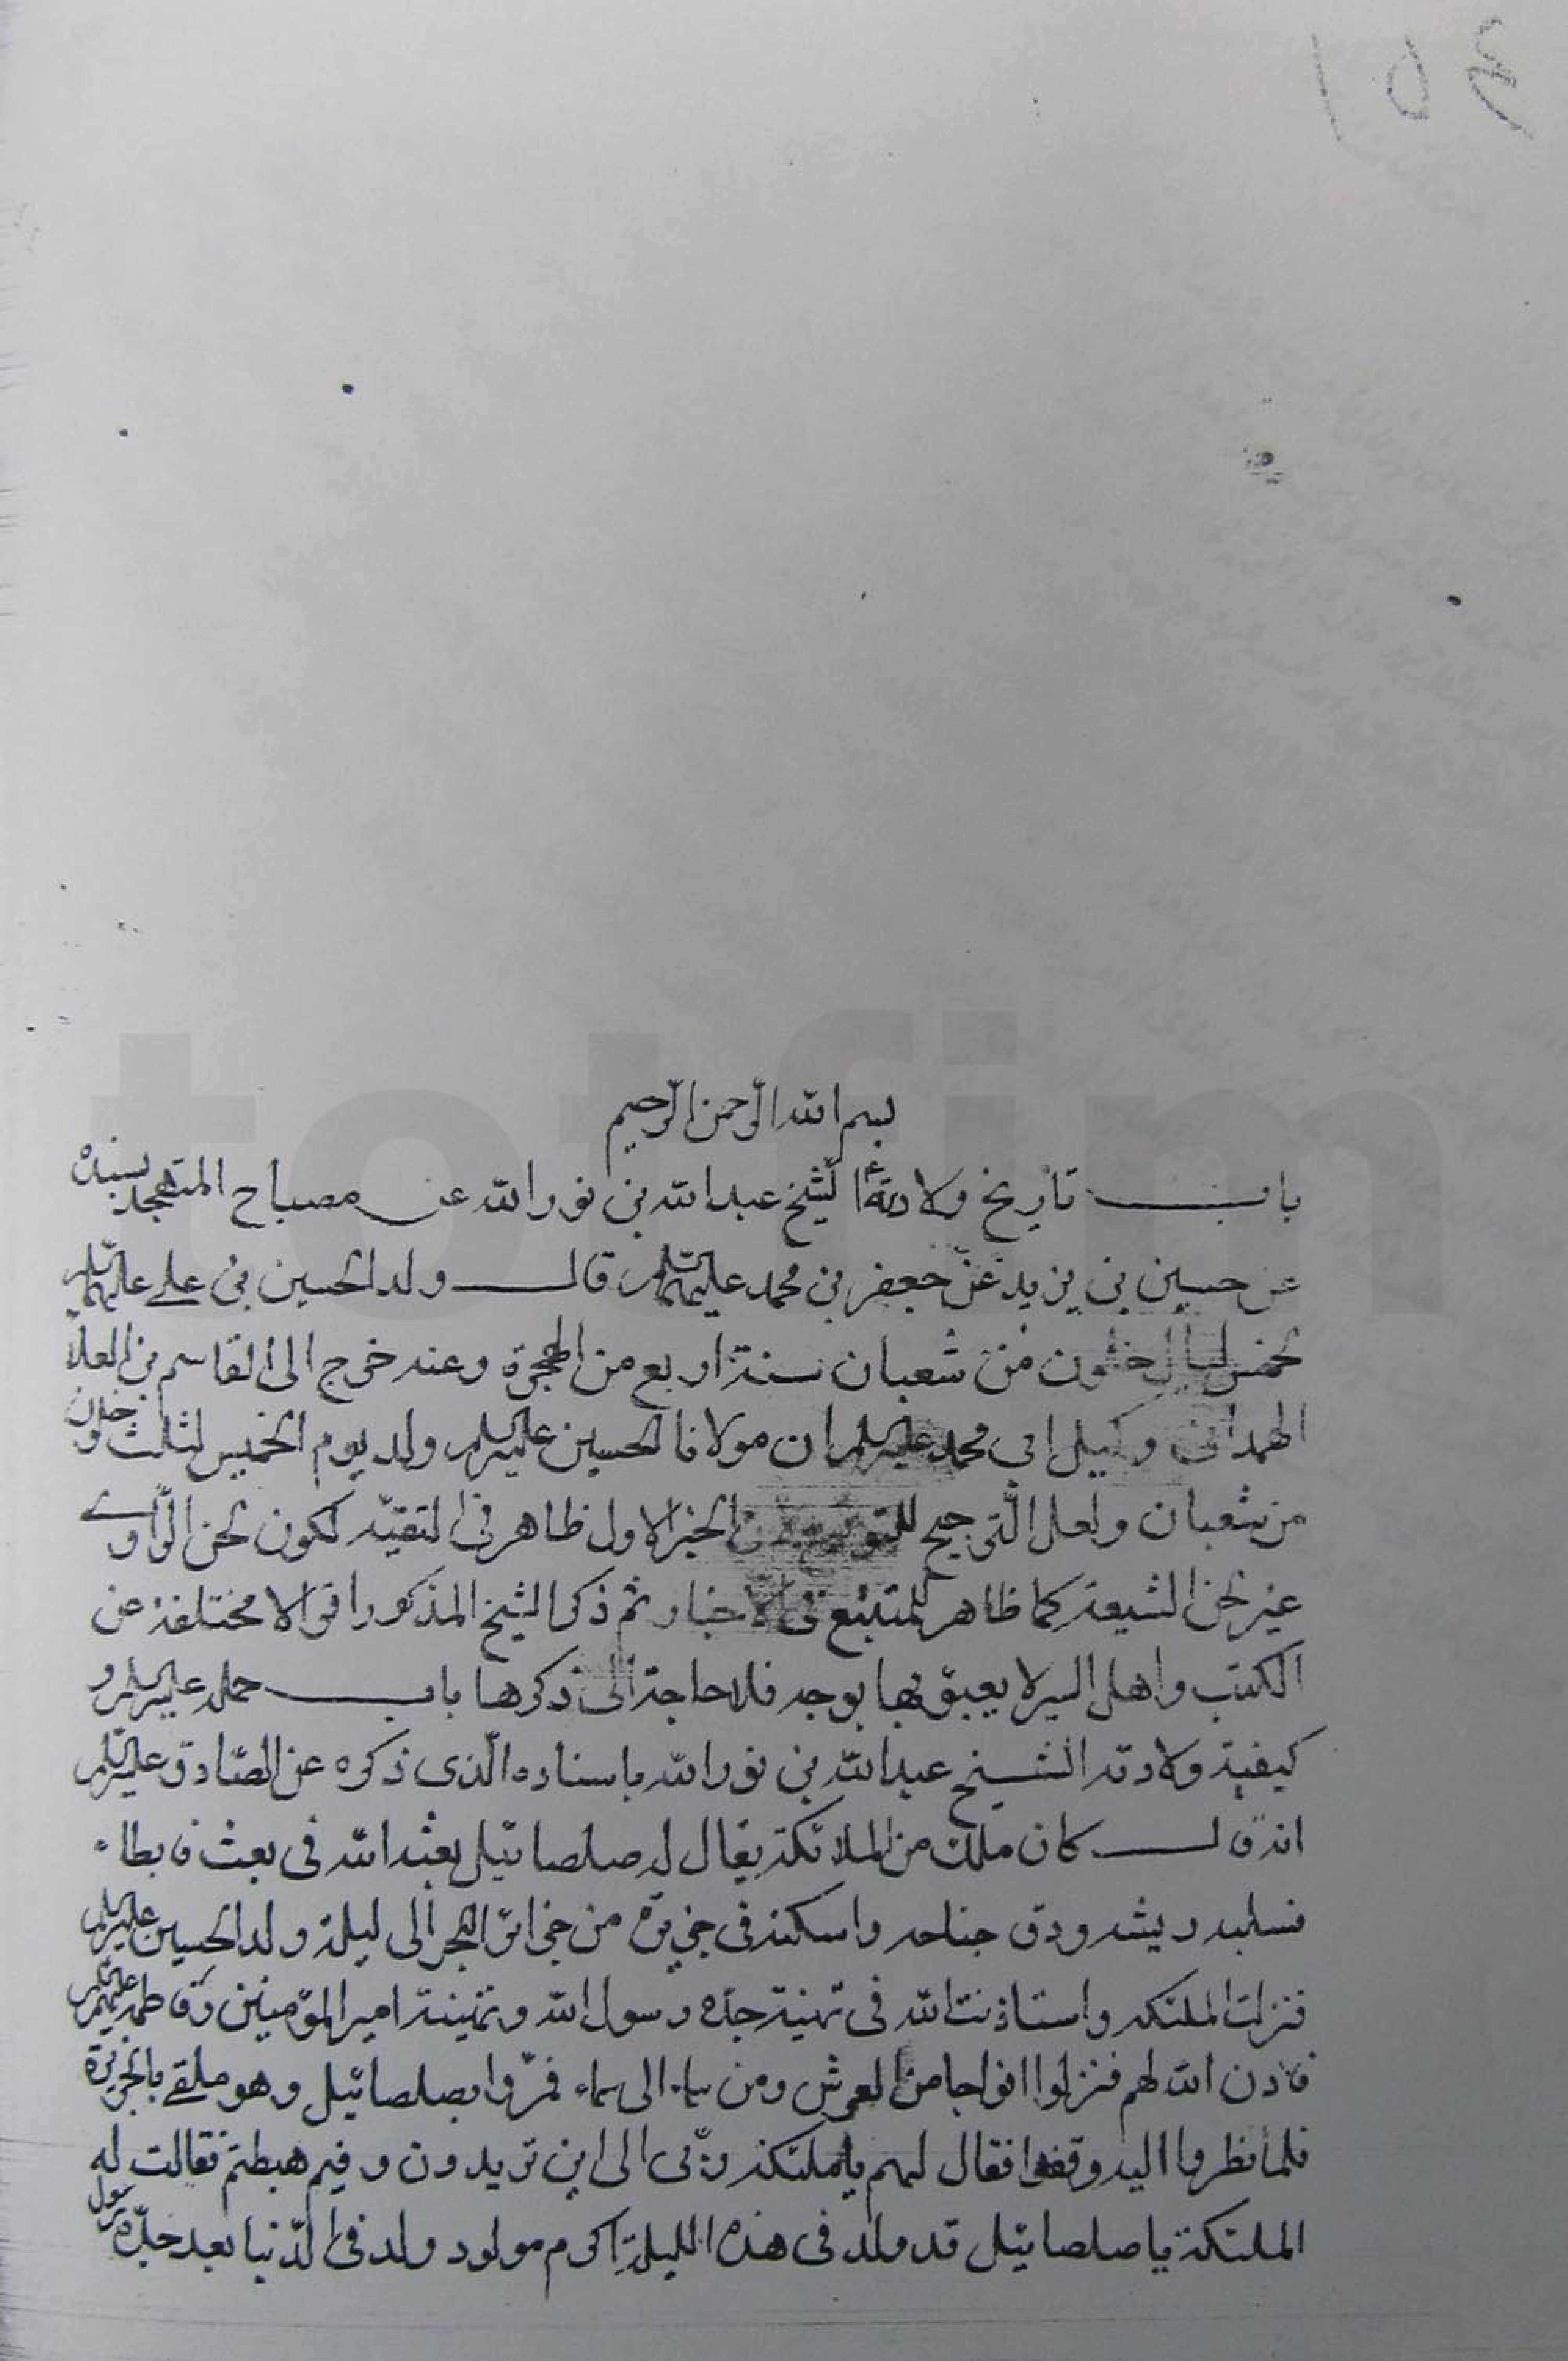 بسم الله الرّحمن الرّحيم
باب تاريخ ولادته ع الشيخ عبد الله بن نور الله عن مصباح المتهجد بسنده
عن حسين بن يزيد عن جعفر بن محمد عليهما السلم قال ولد الحسين بن علي عليهما السلم
لخمس ليال خلون من شعبان سنة اربع من الهجرة وعنه خرج الى القاسم بن العلا
الهمداني وكيل ابي محمد عليه السلم ان مولانا الحسين عليه السلم ولد يوم الخميس لثلث خلون
من شعبان ولعل التّرجيح الخبر الاول ظاهر في التقيّه لكون لحن الرّاوي
غير لحن الشيعة كما ظاهر للمتتبع في الاخبار ثم ذكر الشيخ المذكور اقوالا مختلفة عن
الكتب واهل السير لا بها بوجه فلا حاجة الى ذكرها باب حمله عليه السلم و
كيفية ولادته الشيخ عبد الله بن نور الله باسناده الّذي ذكره عن الصّادق عليه السلم
انه قال كان ملك من الملائكة يقال له صلصائيل بعثه الله في بعث فابطاء
فسلبه ريشه ودق جناحه واسكنه في جزيرة من جزائر البحر الى ليلة ولد الحسين عليه السلم
فنزلت الملئكه واستاذنت الله في تهنية جدّه رسول الله وتهنية امير المؤمنين وفاطمه عليهم السلم
فاذن الله لهم فنزلوا افواجا من العرش ومن سماء الى سماء فمرّوا بصلصائيل وهو ملقى بالجزيرة
فلما نظروا اليه وقفوا فقال لهم يا ملئكة ربّى الى اين تريدون وفيم هبطتم فقالت له
الملئكة يا صلصائيل قد ولد في هذه الليلة اكرم مولود ولد في الدّنيا بعد جدّه رسول